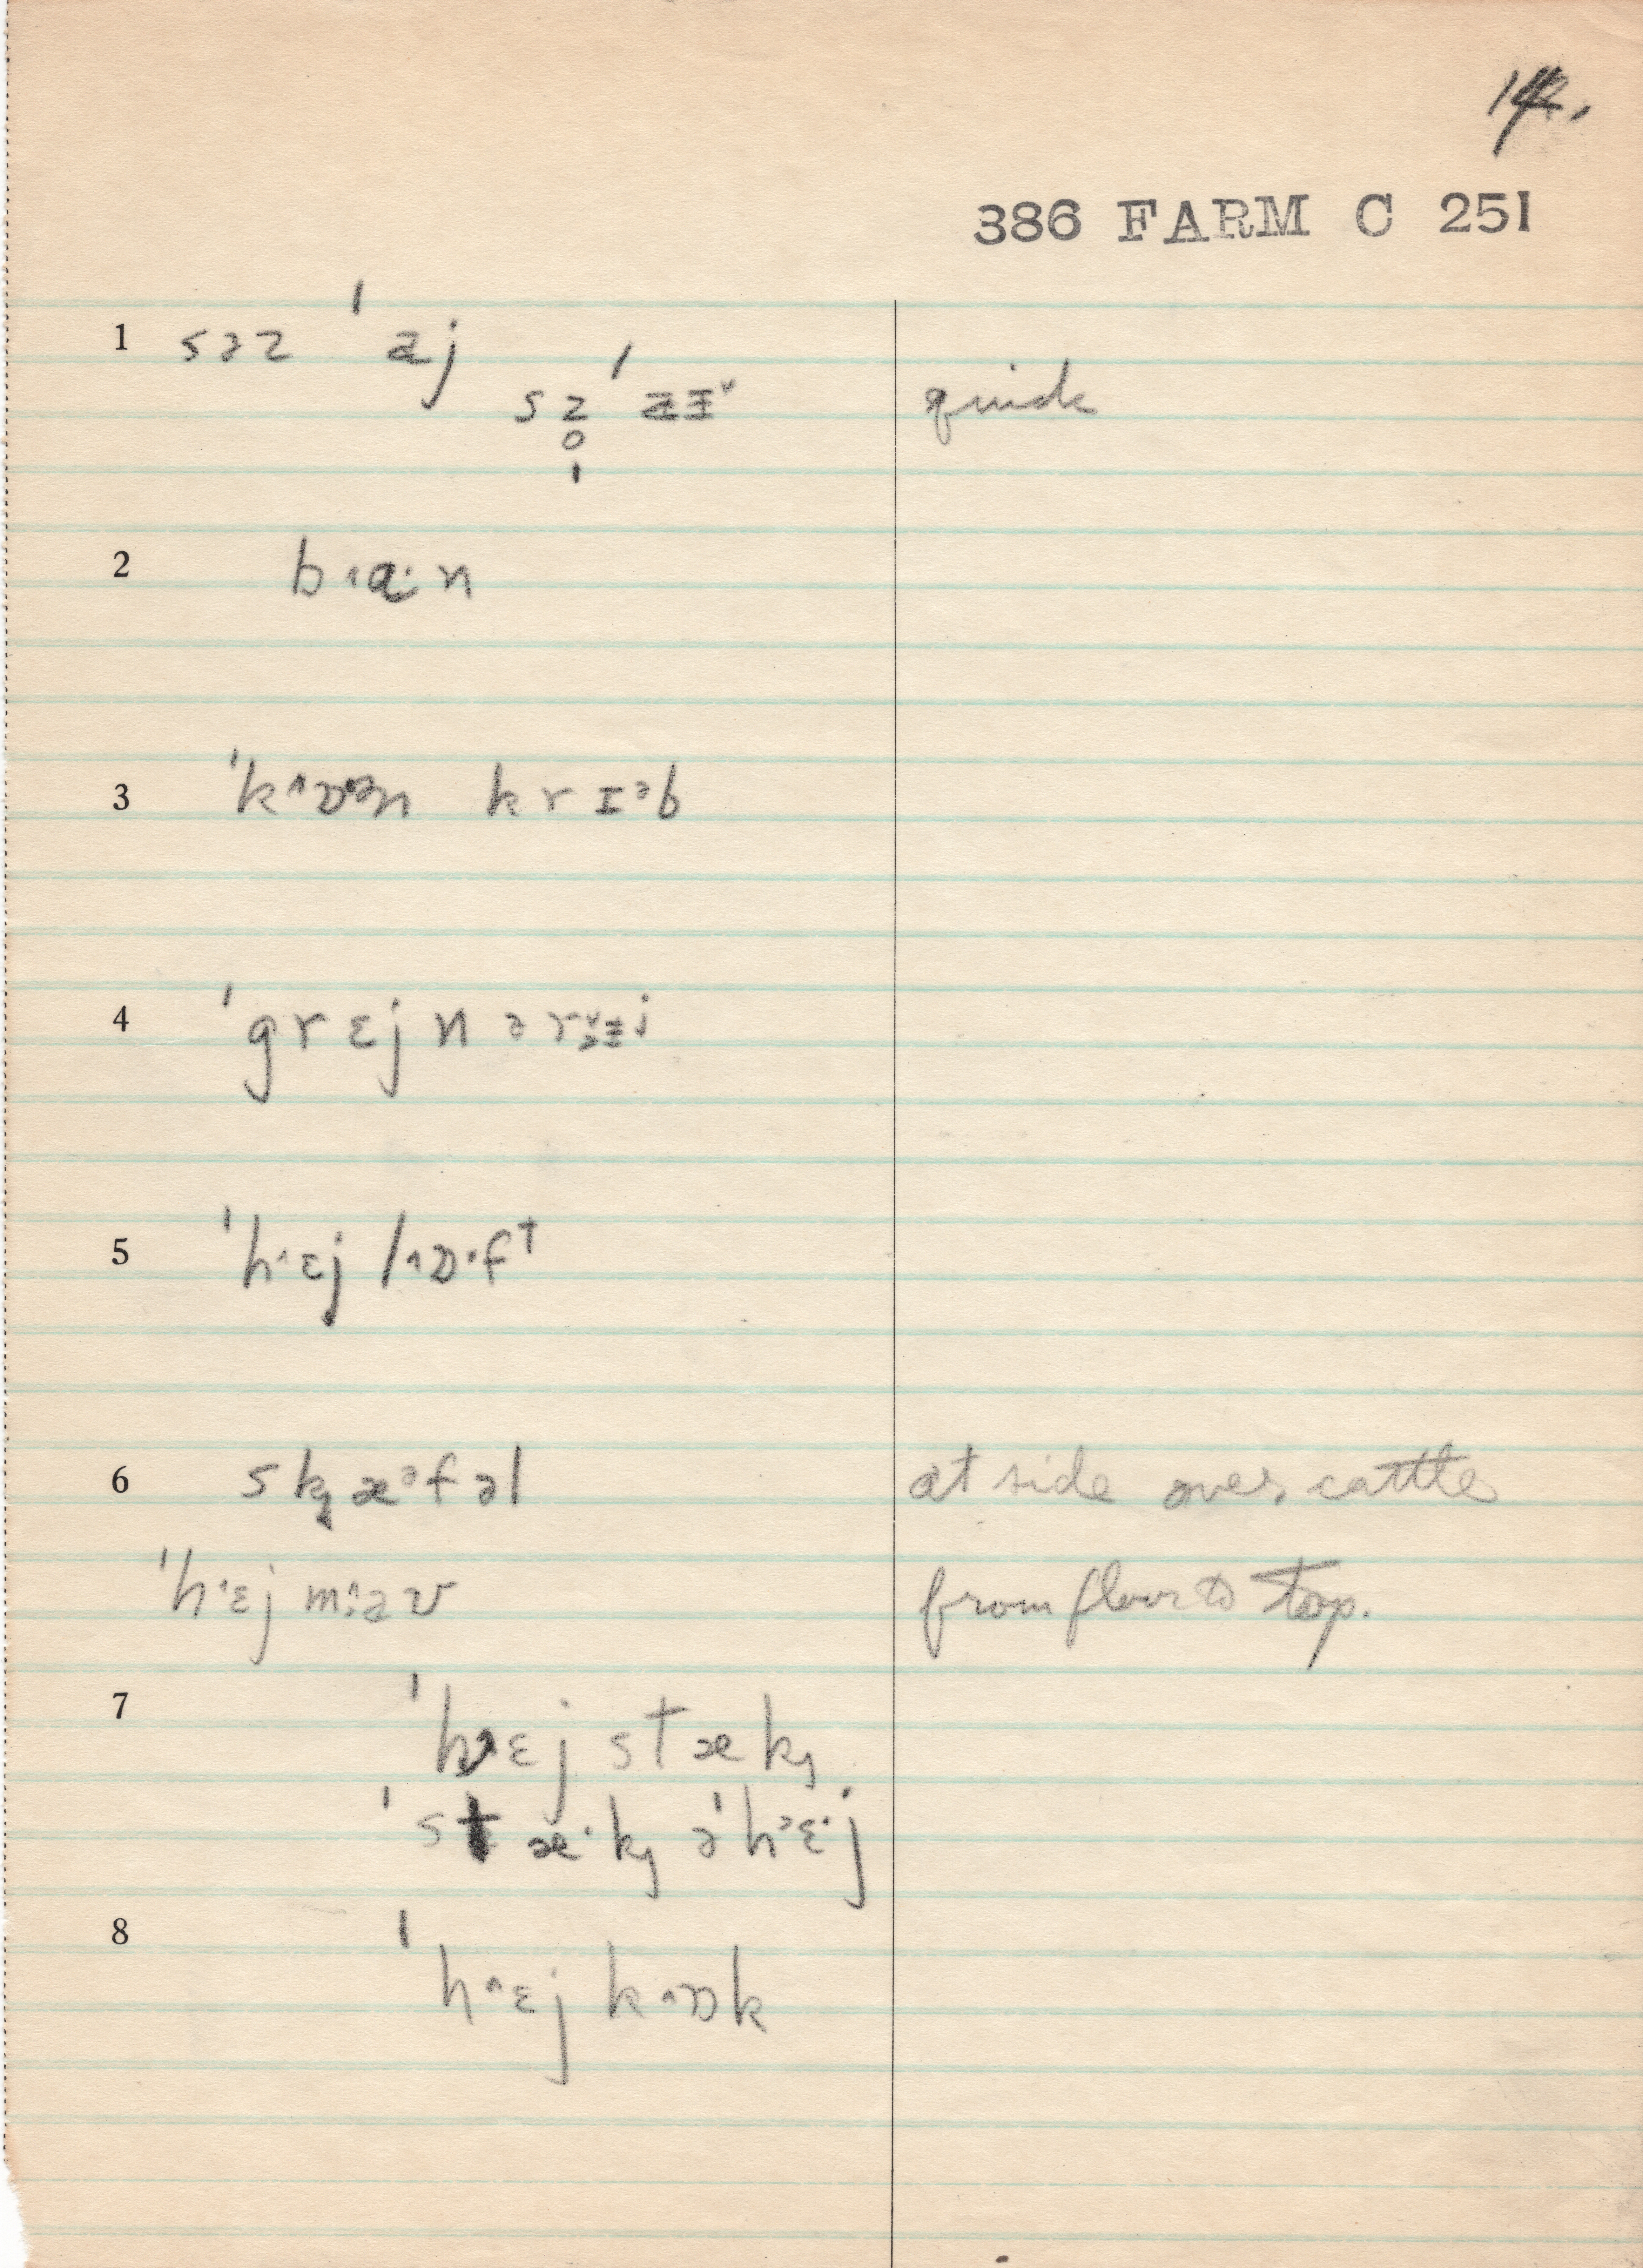 14.
386 FARM C 251
1 səz ˈaj
sz̥ ˈ quick
2 b˄a·n
3 ˈk˄ɒən krɪᵊb
4 ˈgrɛjnərɨj
5 ˈh˄ɛj l˄ɒ·ft
6 skæᵊfəl at side over cattle
ˈh˄ɛj m˄:əʊ from floor to top.
7 ˈh˄ɛj stæk
ˈstæ·k əˈhᵊɛ·j
8 ˈh˄ɛj k˄ɒk